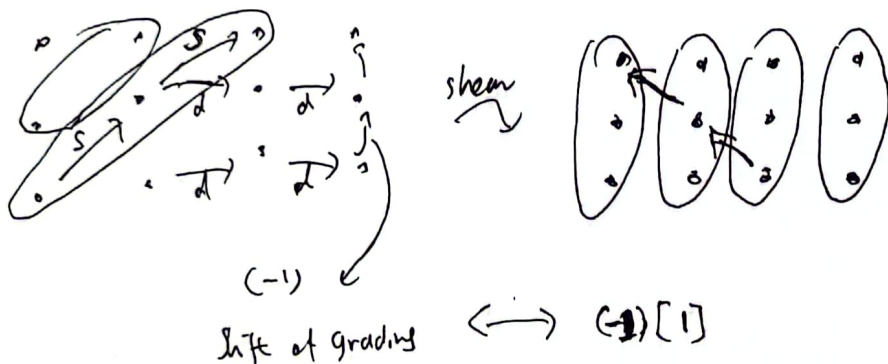 S
S
d
d
d
d
shear
(-1)
shift of grading ⟷ (-1)[1]